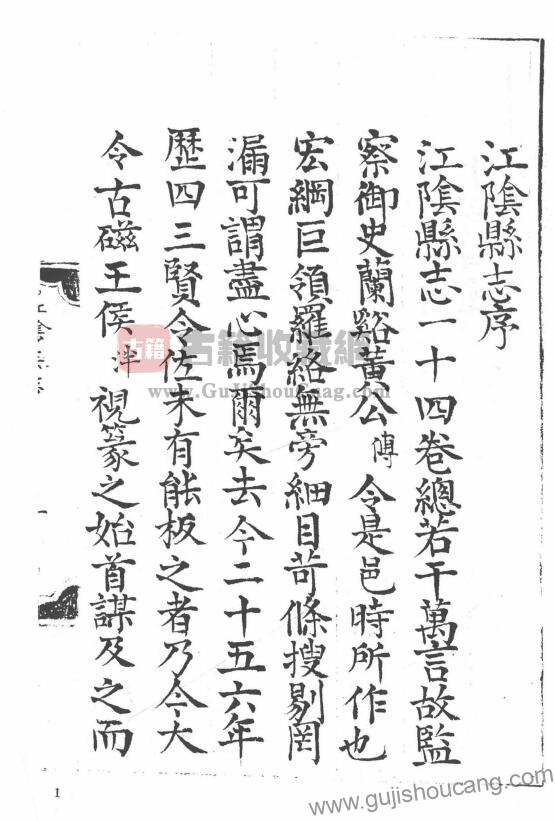 江陰縣志序
江陰縣志一十四卷總若干萬言故監
察御史蘭谿黃公傅令是邑時所作也
宏綱巨領羅絡無旁細目苛條搜剔罔
漏可謂盡心焉爾矣去今二十五六年
歷四三賢令佐未有能板之者乃今大
令古磁王侯泮視篆之始首謀及之而
古籍
古籍收藏網
www.GuJiShouCang.com
1
www.gujishoucang.com